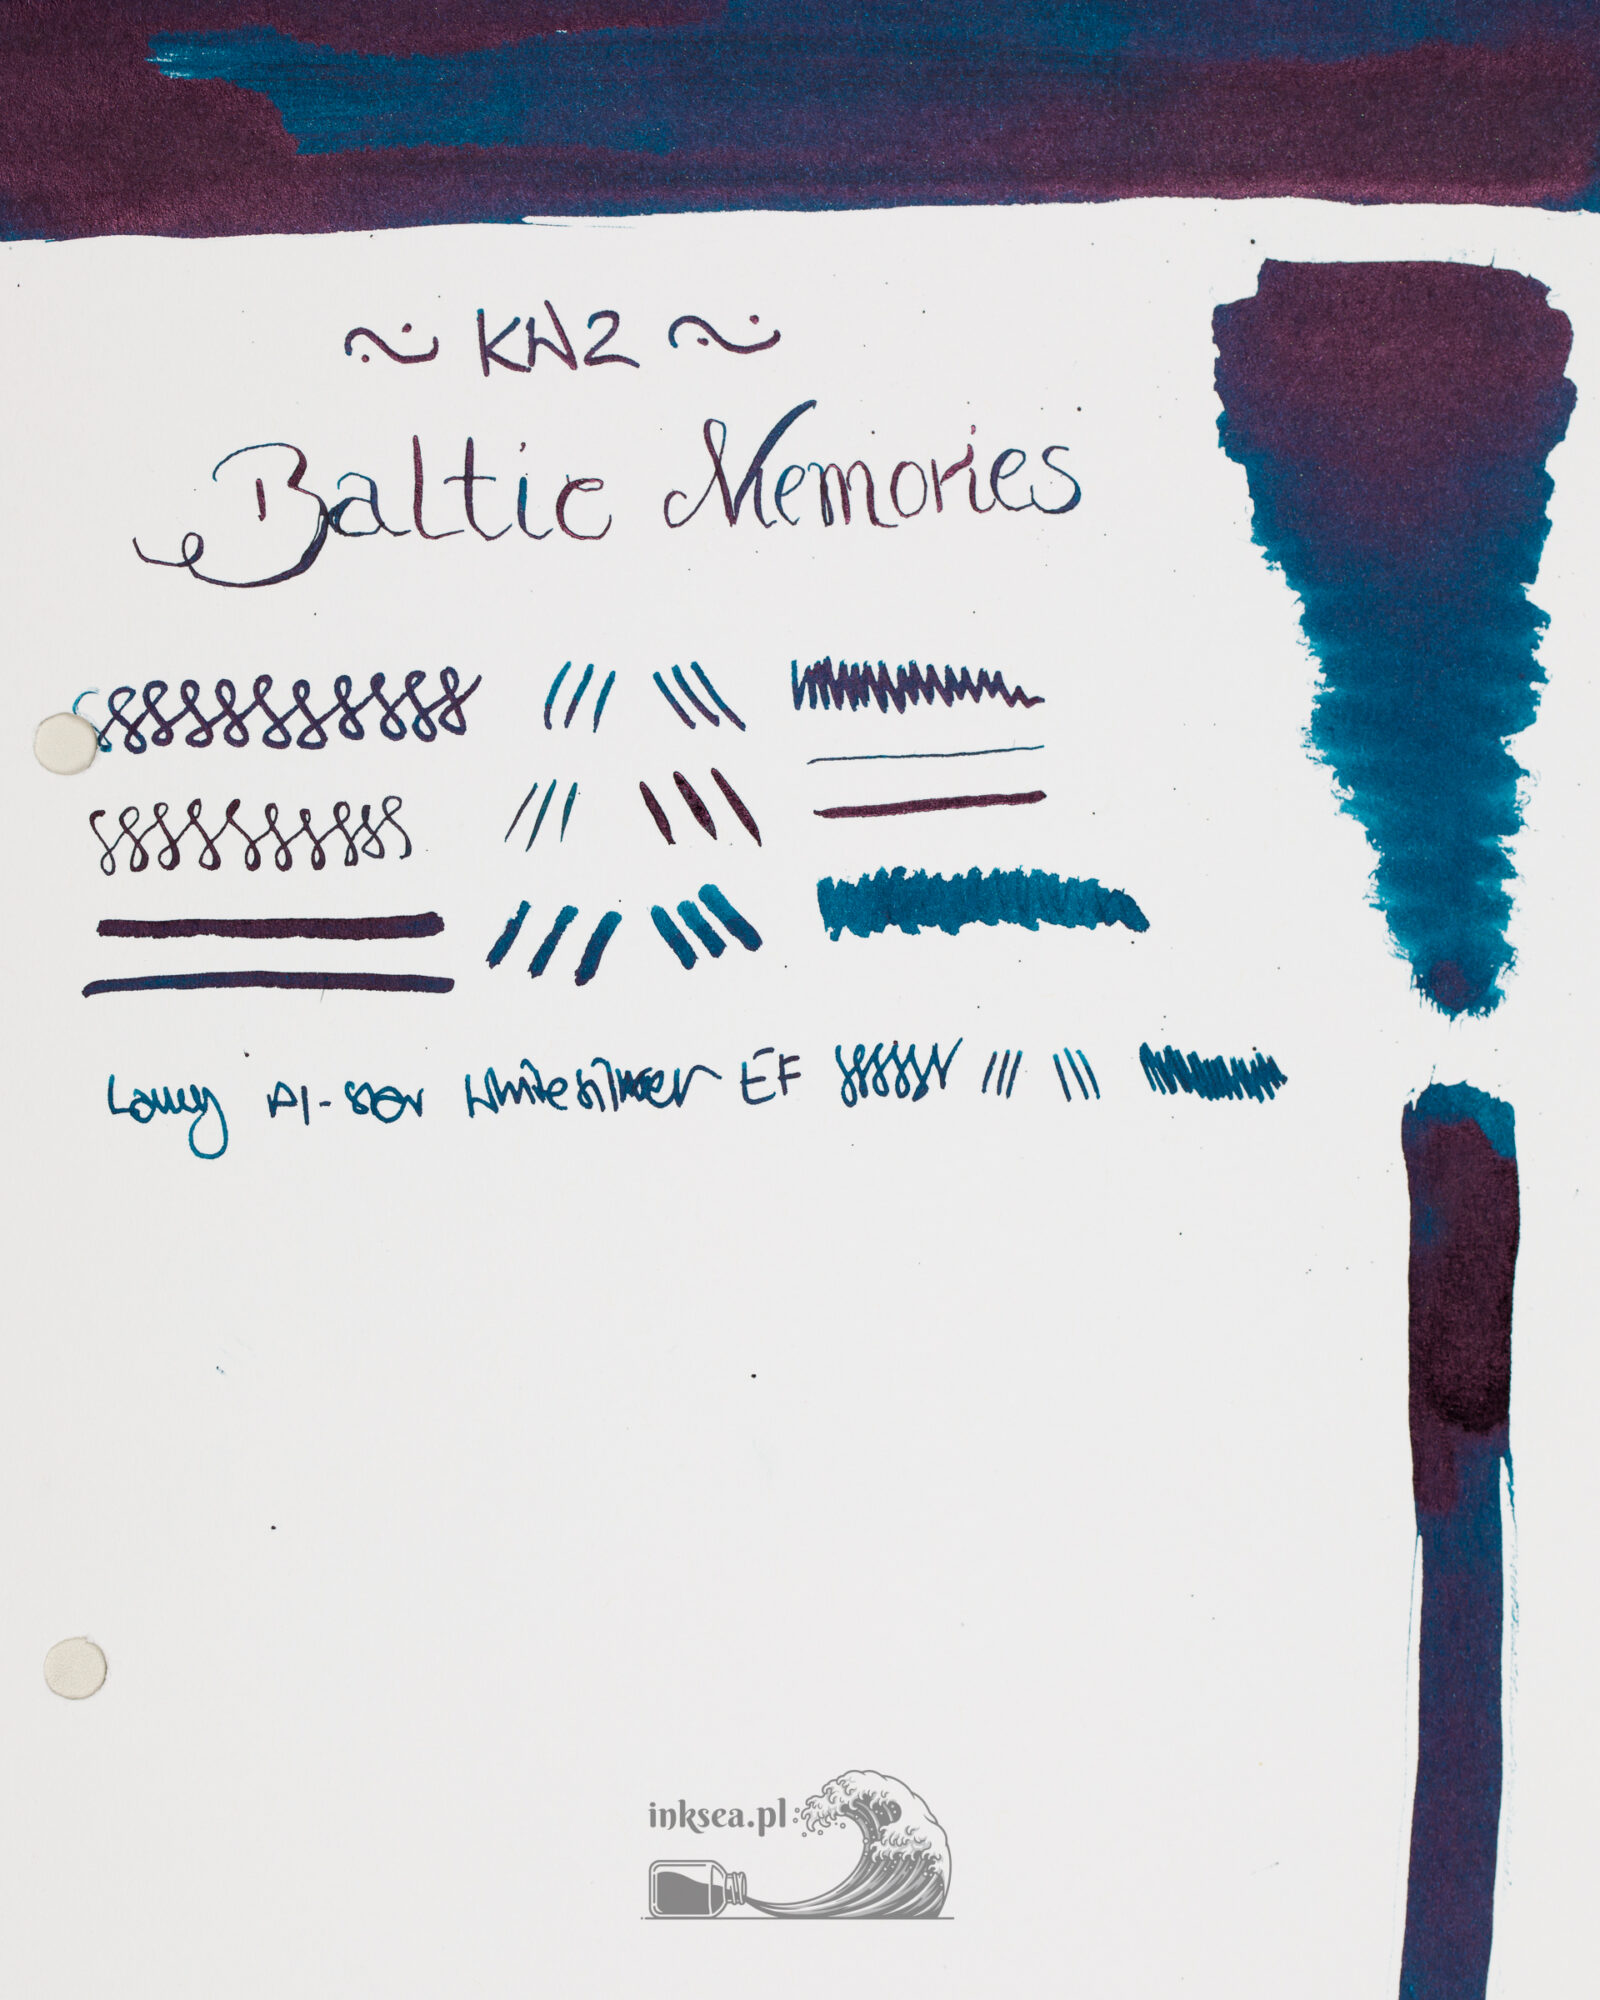 ~ KWZ ~
Baltic Memories
Lamy Al-star Whitesilver EF
inksea.pl